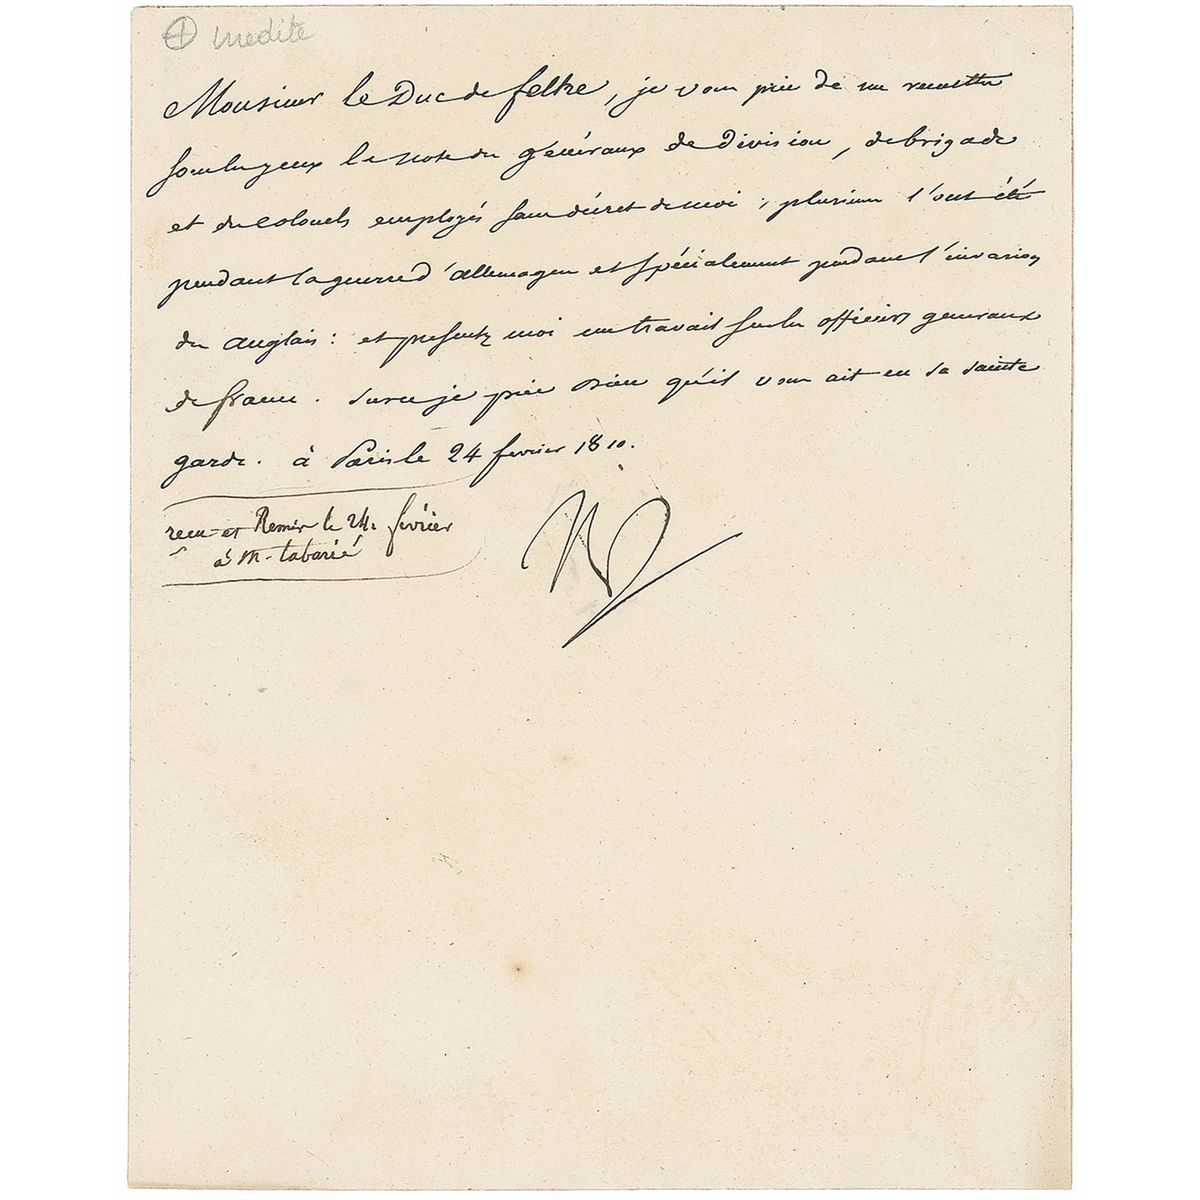 inedite
Monsieur le Duc de feltre, je vous prie de me remettre
sous les yeux la note des généraux de division, de brigade
et des colonels employés sans décret de moi; plusieurs l'ont été
pendant la guerre d'allemagne et spécialement pendant l'invasion
des anglais: et presentez moi un travail sur les officiers generaux
de france. Sur ce je prie Dieu qu'il vous ait en sa sainte
garde. à Paris le 24 fevrier 1810.
recu et Remis le 24. fevrier
à M. tabarié